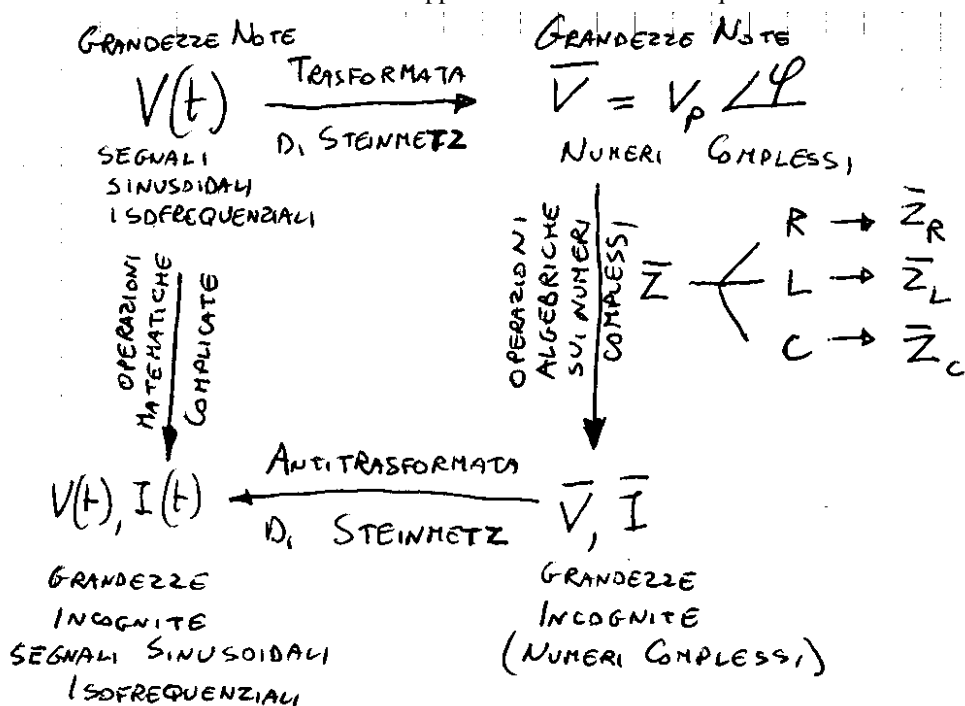 GRANDEZZE NOTE
V(t)
SEGNALI
SINUSOIDALI
ISOFREQUENZIALI
TRASFORMATA
DI STEINMETZ
GRANDEZZE NOTE
V̅ = Vₚ ∠φ
NUMERI COMPLESSI
OPERAZIONI
MATEMATICHE
COMPLICATE
OPERAZIONI
ALGEBRICHE
SUI NUMERI
COMPLESSI
Z̅
R → Z̅_R
L → Z̅_L
C → Z̅_C
ANTITRASFORMATA
DI STEINMETZ
V(t), I(t)
GRANDEZZE
INCOGNITE
SEGNALI SINUSOIDALI
ISOFREQUENZIALI
V̅, I̅
GRANDEZZE
INCOGNITE
(NUMERI COMPLESSI)